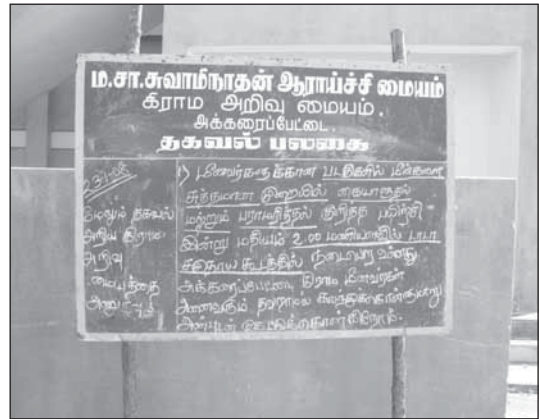 ம.சா.சுவாமிநாதன் ஆராய்ச்சி மையம்
கிராம அறிவு மையம்.
அக்கரைப்பேட்டை.
தகவல் பலகை
மேலும் தகவல்
அறிய கிராம
அறிவு
மையத்தை
1) மீனவர்களுக்கான படகுகளில் மீன்களை
சுத்தமான முறையில் கையாளுதல்
மற்றும் பராமரித்தல் குறித்த பயிற்சி
இன்று மதியம் 2.00 மணியளவில் டாடா
சமுதாய கூடத்தில் நடைபெற உள்ளது
அக்கரைப்பேட்டை கிராம மீனவர்கள்
அனைவரும் தவறாமல் கலந்துகொள்ளுமாறு
அன்புடன் கேட்டுக்கொள்கிறோம்.